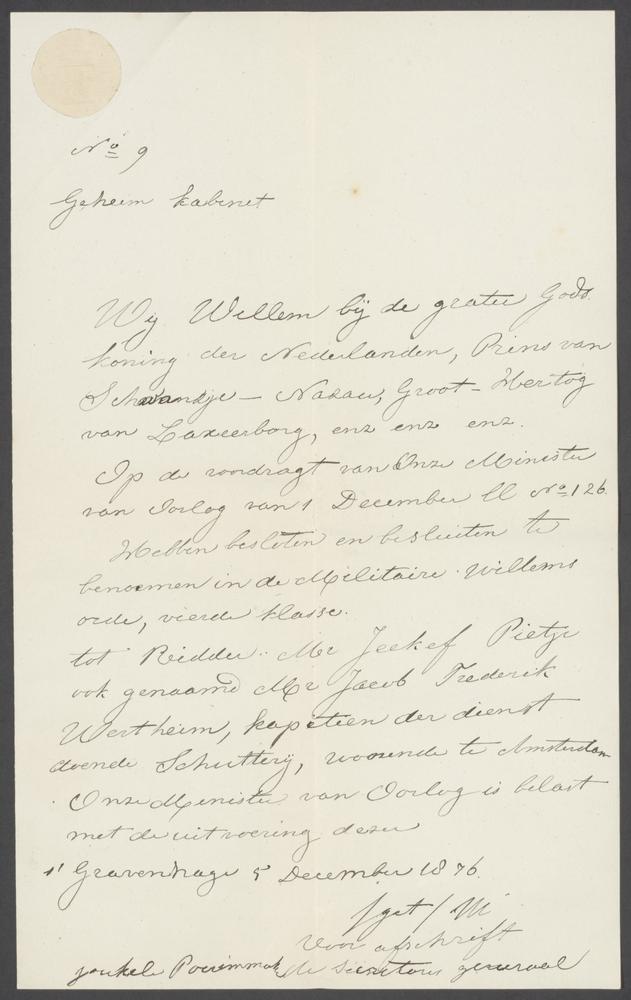 No 9
Geheim Kabinet
Wij Willem bij de gratie Gods
koning der Nederlanden, Prins van
Schavandje - Nassau, Groot-Hertog
van Laxeerborg, enz enz enz.
Op de voordragt van Onze Minister
van Oorlog van 1 December ll No 126
Hebben besloten en besluiten te
benoemen in de Militaire Willems
orde, vierde klasse.
tot Ridder. Mr Jeekef Pietje
ook genaamd Mr Jacob Frederik
Wertheim, kapitein der dienst
doende Schutterij, wonende te Amsterdam
Onze Minister van Oorlog is belast
met de uitvoering dezer
s' Gravenhage 5 December 1876.
/get/ W
Voor afschrift
de Secretaris generaal